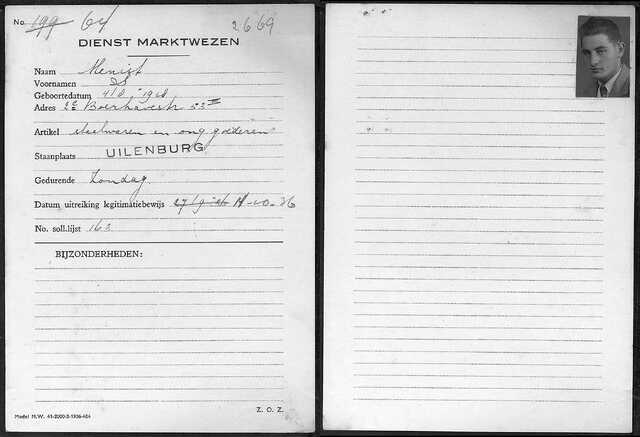 No. 199 64 2669
DIENST MARKTWEZEN
Naam Menist
Voornamen
Geboortedatum 4/8 - 1918
Adres 2e Boerhavestr 53 III
Artikel staalwaren en ong goederen
Staanplaats UILENBURG
Gedurende Zondag
Datum uitreiking legitimatiebewijs 11-10-36
No. soll.lijst 163
BIJZONDERHEDEN:
Model M.W. 41-2000-3-1936-404
Z. O. Z.